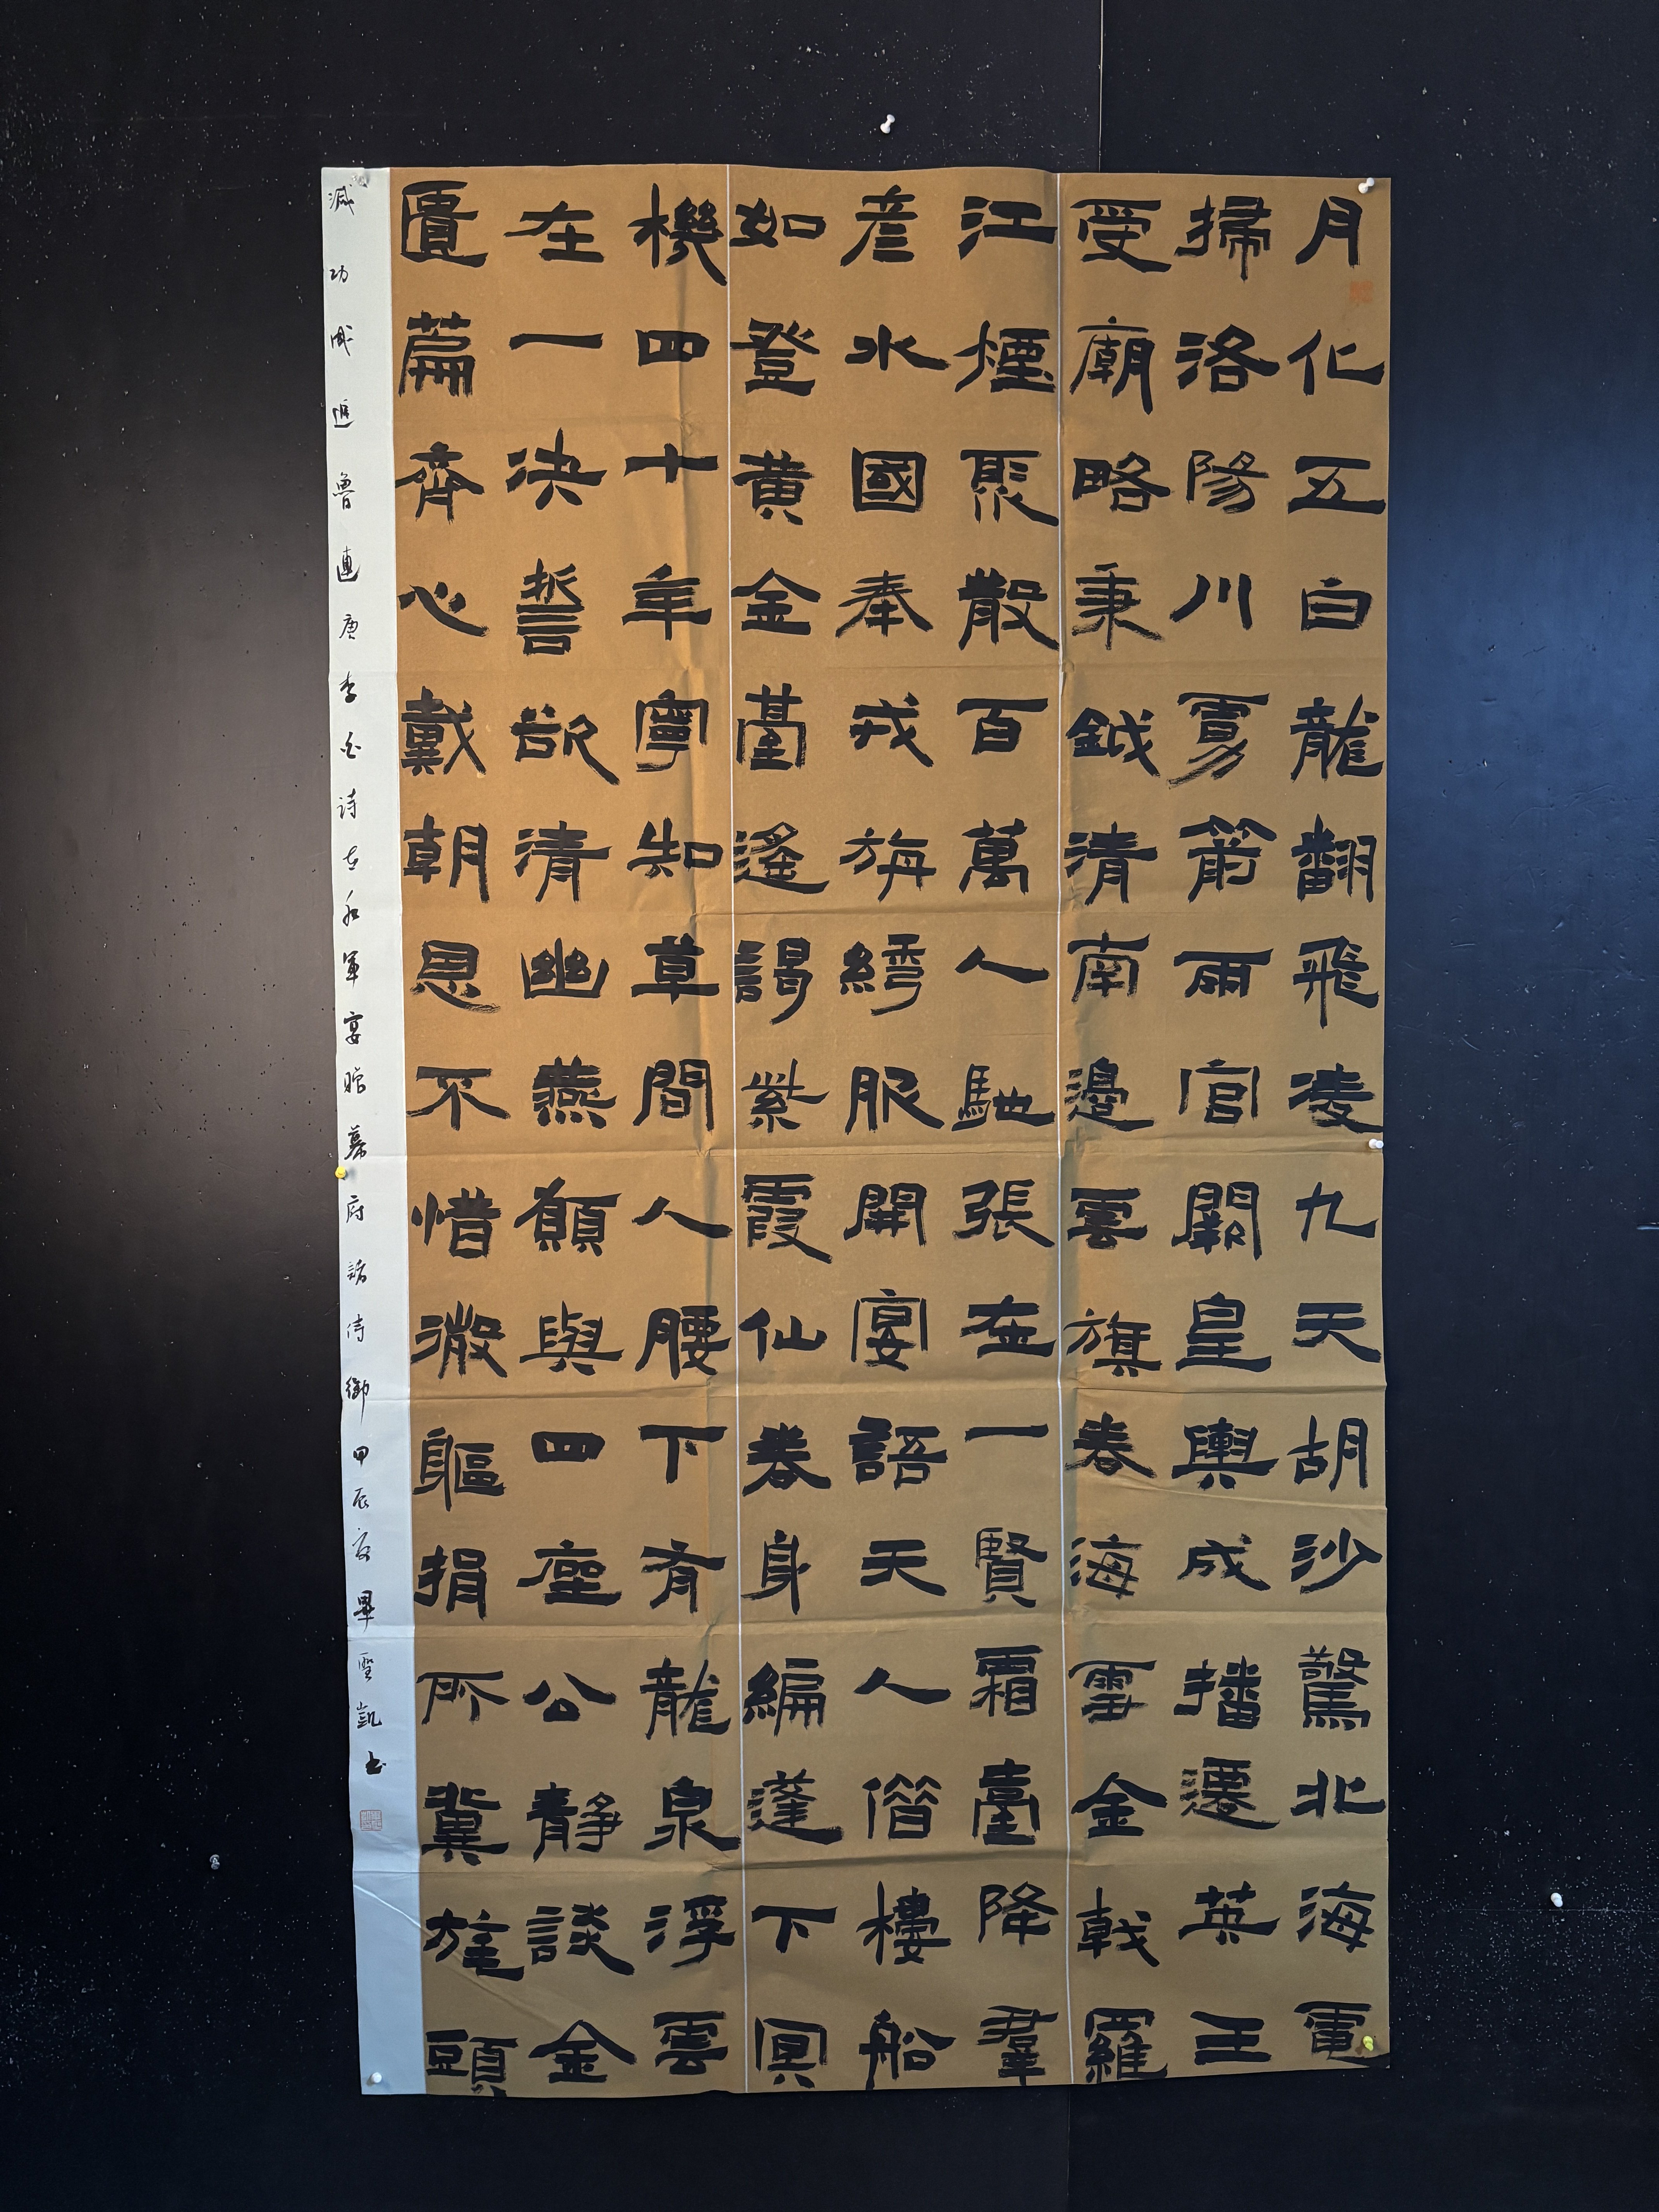 月化五白龍翻飛凌九天胡沙驚北海電
掃洛陽川虜箭雨宮闕皇輿成播遷英王
受廟略秉鉞清南邊雲旗卷海雪金戟羅
江煙聚散百萬人馳張在一賢霜臺降羣
彦水國奉戎旃繡服開宴語天人借樓船
如登黃金臺遙謁紫霞仙卷身編蓬下冥
機四十年寧知草間人腰下有龍泉浮雲
在一決誓欲清幽燕願與四座公靜談金
匱篇齊心戴朝恩不惜微軀捐所冀旄頭
滅功成追魯連唐李白詩在水軍宴贈幕府諸侍御甲辰夏畢聖凱书